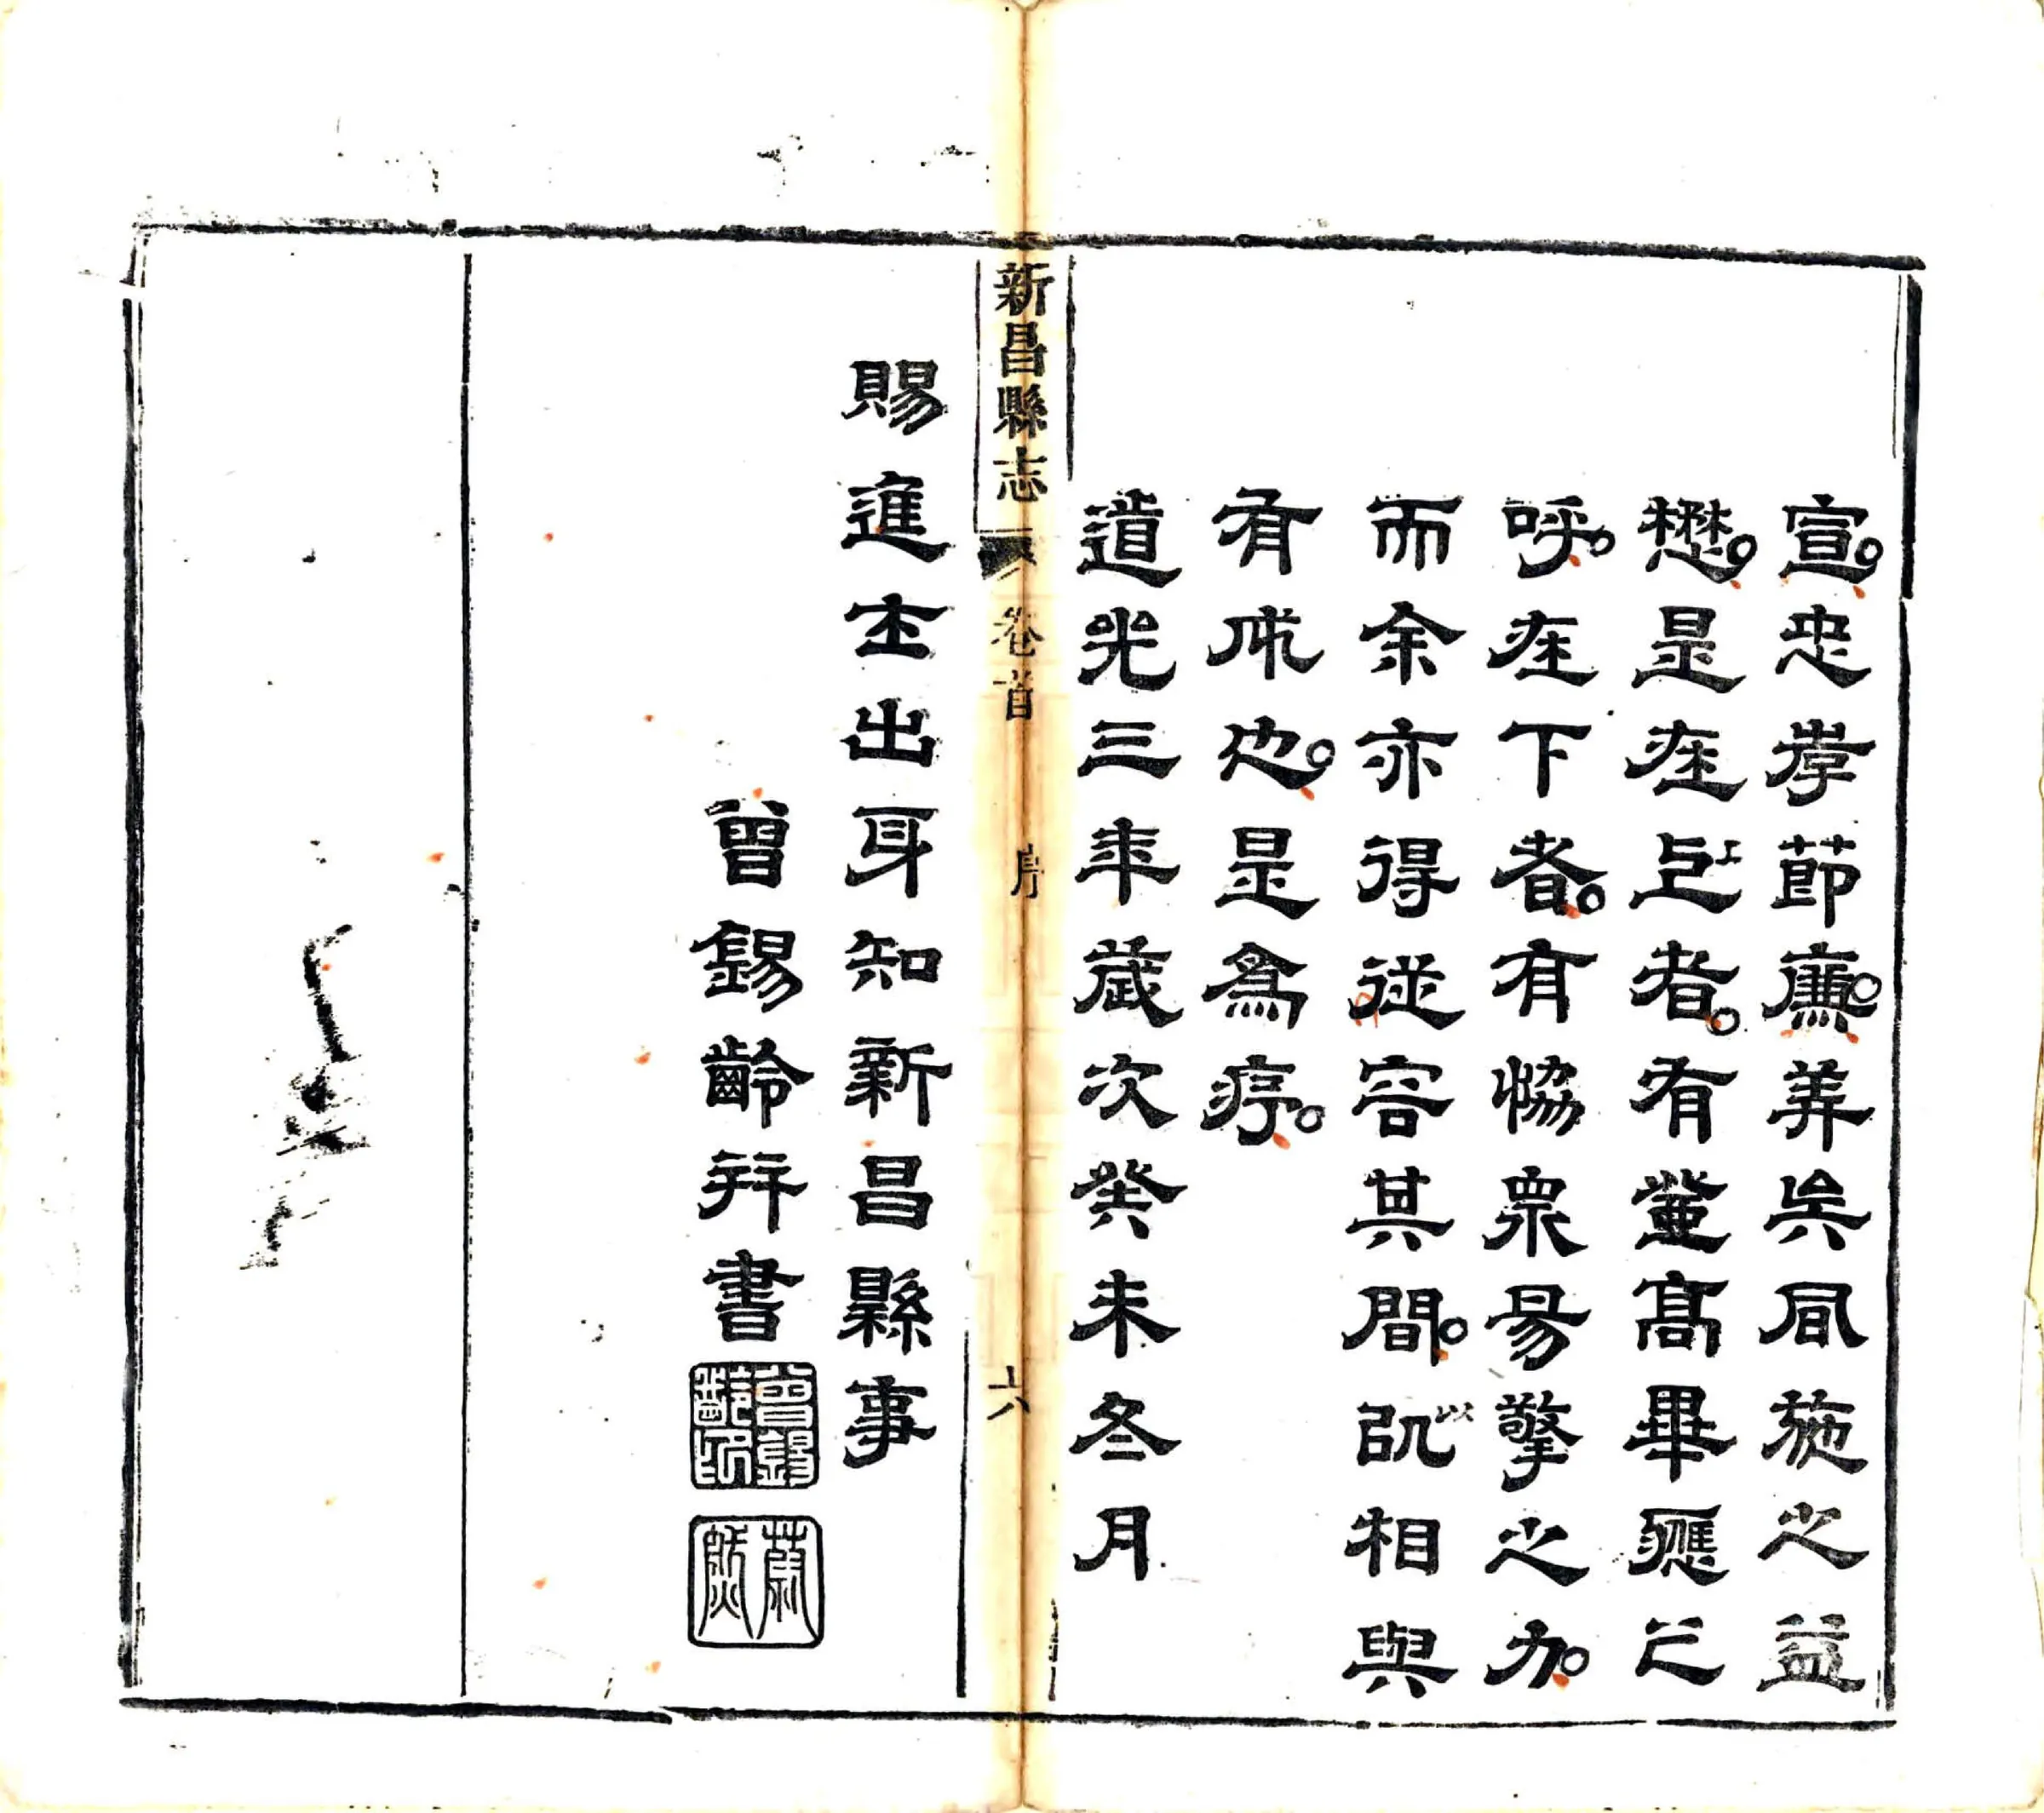 宣。忠孝節廉。美矣同施之益
懋。是在上者。有登高畢應之
呼。在下者。有協眾易擎之力。
而余亦得從容其間。以相與
有成也。是為序。
道光三年歲次癸未冬月
新昌縣志 卷首 序 六
賜進士出身知新昌縣事
曾錫齡并書
曾錫齡印